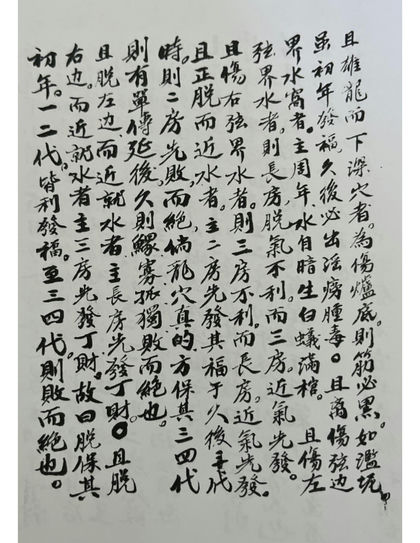 且雄龍而下深穴者。為傷爐底。則筋必黑。如濫坭
虽初年發福。久後必出淫癆腫毒。且离傷弦边
界水窩者。主周年水自暗生白蟻滿棺。且傷左
弦界水者。則長房脫氣不利。而三房近氣先發。
且傷右弦界水者。則三房不利。而長房近氣先發。
且正脫而近水者。主二房先發其福于久後
時。則二房先敗。而絕倘龍穴真的方保其三四代
則有單傳延後。久則鰥寡孤獨敗而絕也。
且脫左边。而近就水者主長房先發丁財。且脫
右边。而近就水者主三房先發丁財。故曰脫保其
初年。一二代。皆利發福。至三四代則敗而絕也。